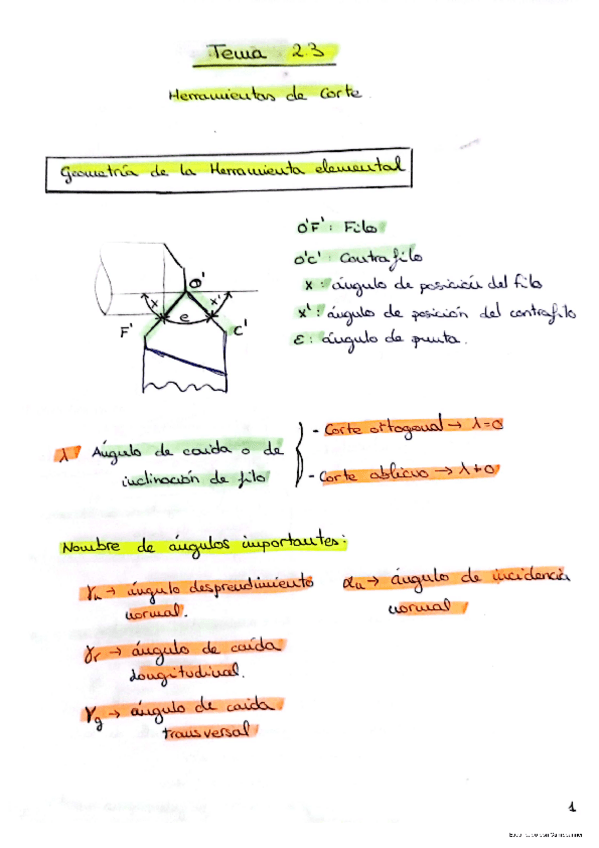 Tema 2.3
Herramientas de Corte.
Geometría de la Herramienta elemental
O'F' : Filo
O'C' : Contrafilo
x : ángulo de posición del filo
x' : ángulo de posición del contrafilo
ε : ángulo de punta.
O'
x
x'
e
F'
C'
λ Ángulo de caida o de
inclinación de filo
- Corte ortogonal → λ=0
- Corte oblicuo → λ≠0
Nombre de ángulos importantes:
γn → ángulo desprendimiento
normal.
αn → ángulo de incidencia
normal
γr → ángulo de caída
longitudinal.
γg → ángulo de caida
transversal
1